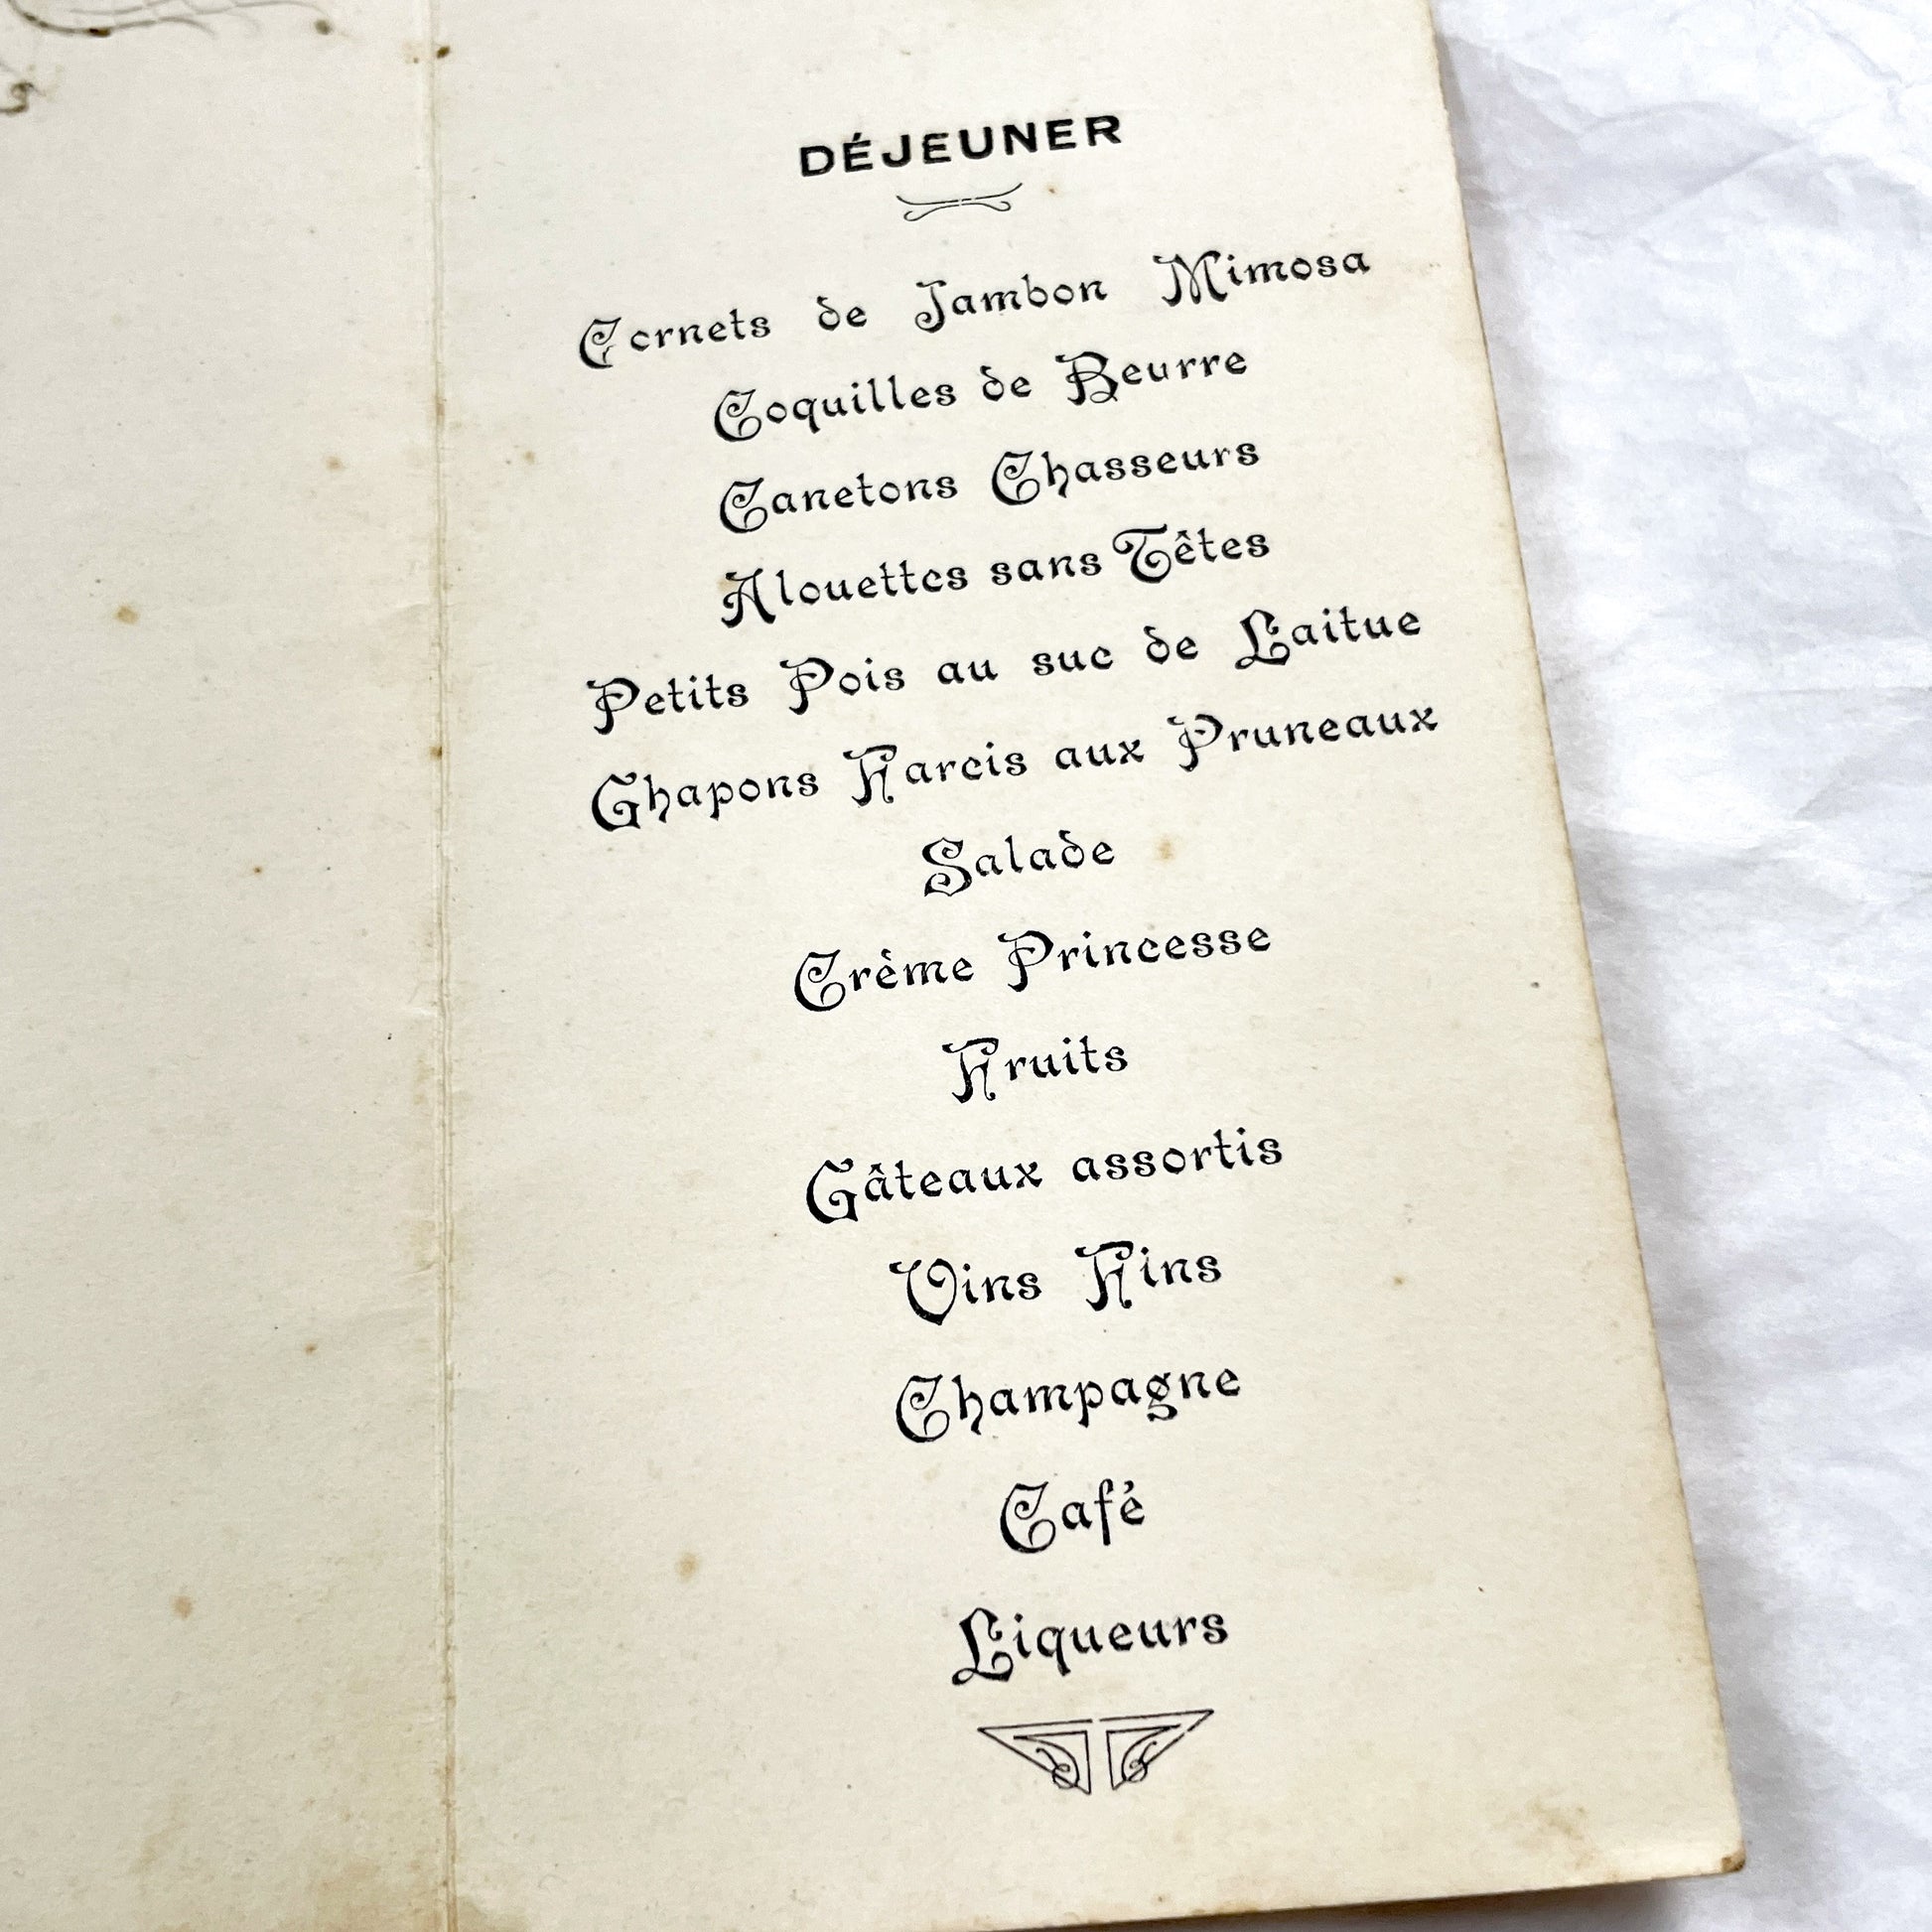 DÉJEUNER
Cornets de Jambon Mimosa
Coquilles de Beurre
Canetons Chasseurs
Alouettes sans Têtes
Petits Pois au suc de Laitue
Ghapons Farcis aux Pruneaux
Salade
Crème Princesse
Fruits
Gâteaux assortis
Vins Fins
Champagne
Café
Liqueurs